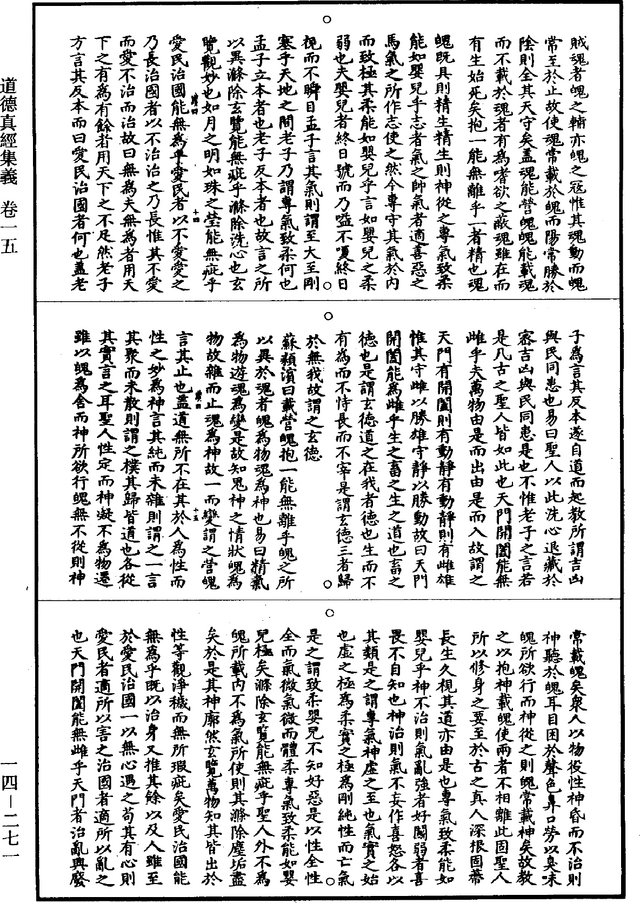 賊魂者魄之輔亦魄之寇惟其魂動而魄
常至於止故使魂常載於魄而陽常勝於
陰則全其天守矣蓋魂能營魄魄能載魂
而不載於魂者有為者嗜欲之蔽魂雖在而
有生始死矣抱一能無離乎一者精也魂
魄既具則精生精生則神從之專氣致柔
能如嬰兒乎志者氣之帥氣者適善惡之
馬氣之所作志使之然今專守其氣於內
而致極其柔能如嬰兒乎言如嬰兒之柔
弱也夫嬰兒者終日號而乃嗌不嗄終日
視而不瞬目孟子言其氣則謂至大至剛
塞乎天地之間老子乃謂專氣致柔何也
孟子立本者也老子反本者也故言之所
以異滌除玄覽能無疵乎滌除洗心也玄
覽觀妙也如月之明如珠之瑩能無疵乎
愛民治國能無為乎愛民者以不愛愛之
乃長治國者以不治治之乃長惟其不愛
而愛不治而治故曰無為夫無為者用天
下之有為有餘者用天下之不足然老子
方言其反本而曰愛民治國者何也蓋老
子為言其反本遂自道而起教所謂吉凶
與民同患也易曰聖人以此洗心退藏於
密吉凶與民同患是也不惟老子之言若
是凡古之聖人皆如此也天門開闔能無
雌乎夫萬物由是而出由是而入故謂之
天門有開闔則有動靜有動靜則有雌雄
惟其守雌以勝雄守靜以勝動故曰天門
開闔能為雌乎生之畜之生之道也畜之
德也是謂玄德道之在我者德也生而不
有為而不恃長而不宰是謂玄德三者歸
於無我故謂之玄德
蘇潁濱曰載營魄抱一能無離乎魄之所
以異於魂者魄為物魂為神也易曰精氣
為物遊魂為變是故知鬼神之情狀魄為
物故雜而止魂為神故一而變謂之營魄
言其止也蓋道無所不在其於人為性而
性之妙為神言其純而未雜則謂之一言
其聚而未散則謂之樸其歸皆道也各從
其實言之耳聖人性定而神凝不為物遷
雖以魄為舍而神所欲行魄無不從則神
常載魄矣衆人以物役性神昏而不治則
神聽於魄耳目困於聲色鼻口勞以臭味
魄所欲行而神從之則魄常載神矣故教
之以抱神載魄使兩者不相離此固聖人
所以修身之要至於古之真人深根固蒂
長生久視其道亦由是也專氣致柔能如
嬰兒乎神不治則氣亂強者好鬭弱者喜
畏不自知也神治則氣不妄作喜怒各以
其類是之謂專氣神虛之至也氣實之始
也虛之極為柔實之極為剛純性而亡氣
是之謂致柔嬰兒不知好惡是以性全性
全而氣微氣微而體柔專氣致柔能如嬰
兒極矣滌除玄覽能無疵乎聖人外不為
魄所載內不為氣所使則其滌除塵垢盡
矣於是其神廓然玄覽萬物知其皆出於
性等觀淨穢而無所瑕疵矣愛民治國能
無為乎既以治身又推其餘以及人雖至
於愛民治國一以無心遇之苟其有心則
愛民者適所以害之治國者適所以亂之
也天門開闔能無雌乎天門者治亂興廢
道德真經集義　卷一五
一四—二七一